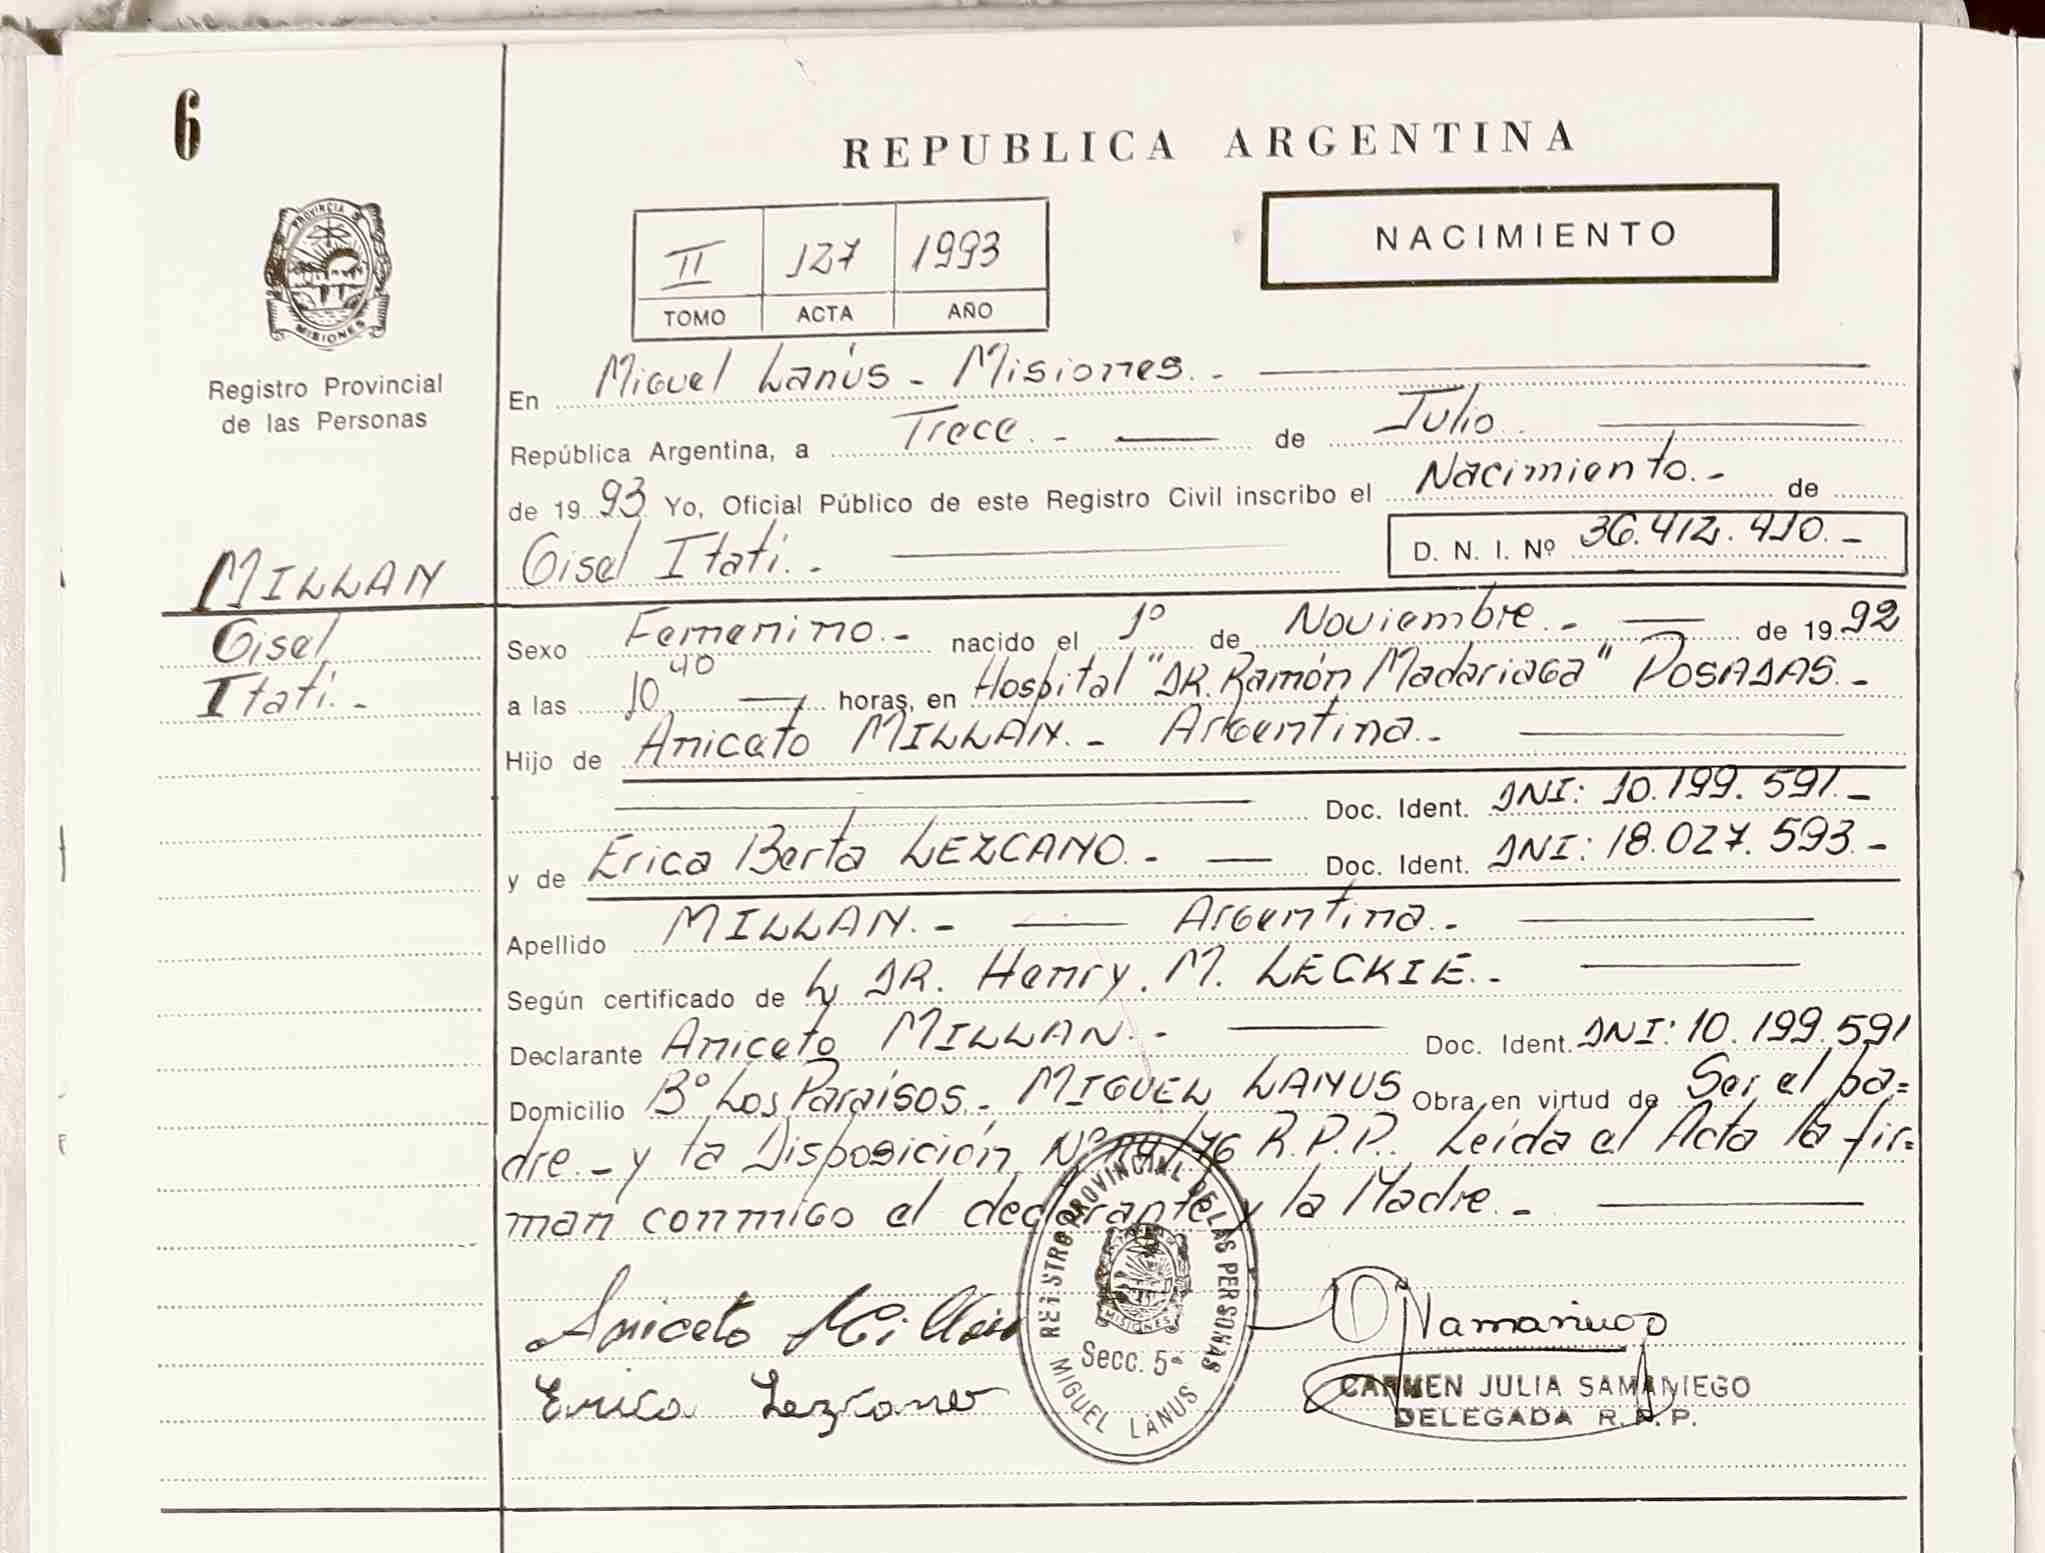 6
REPUBLICA ARGENTINA
PROVINCIA DE
MISIONES
Registro Provincial
de las Personas
II 127 1993
TOMO ACTA AÑO
NACIMIENTO
En Miguel Lanús - Misiones.-
República Argentina, a Trece.- de Julio
de 1993 Yo, Oficial Público de este Registro Civil inscribo el Nacimiento.- de
MILLAN
Gisel Itatí.-
D. N. I. Nº 36.412.410.-
Gisel
Itatí.-
Sexo Femenino.- nacido el 1º de Noviembre.- de 1992
a las 10 40 horas, en Hospital "DR. Ramón Madariaga" POSADAS.-
Hijo de Aniceto MILLAN.- Argentina.-
Doc. Ident. DNI: 10.199.591.-
y de Erica Berta LEZCANO.- Doc. Ident. DNI: 18.027.593.-
Apellido MILLAN.- Argentina.-
Según certificado de DR. Henry. M. LECKIE.-
Declarante Aniceto MILLAN.- Doc. Ident. DNI: 10.199.591
Domicilio Bº Los Paraisos.- MIGUEL LANUS Obra en virtud de Ser el pa=
dre.- y la Disposición Nº /76 R.P.P. Leída el Acta la fir=
man conmigo el declarante y la Madre.-
Aniceto Millán
Erica Lezcano
REGISTRO PROVINCIAL DE LAS PERSONAS
MISIONES
Secc. 5ª
MIGUEL LANUS
Samaniego
CARMEN JULIA SAMANIEGO
DELEGADA R.P.P.